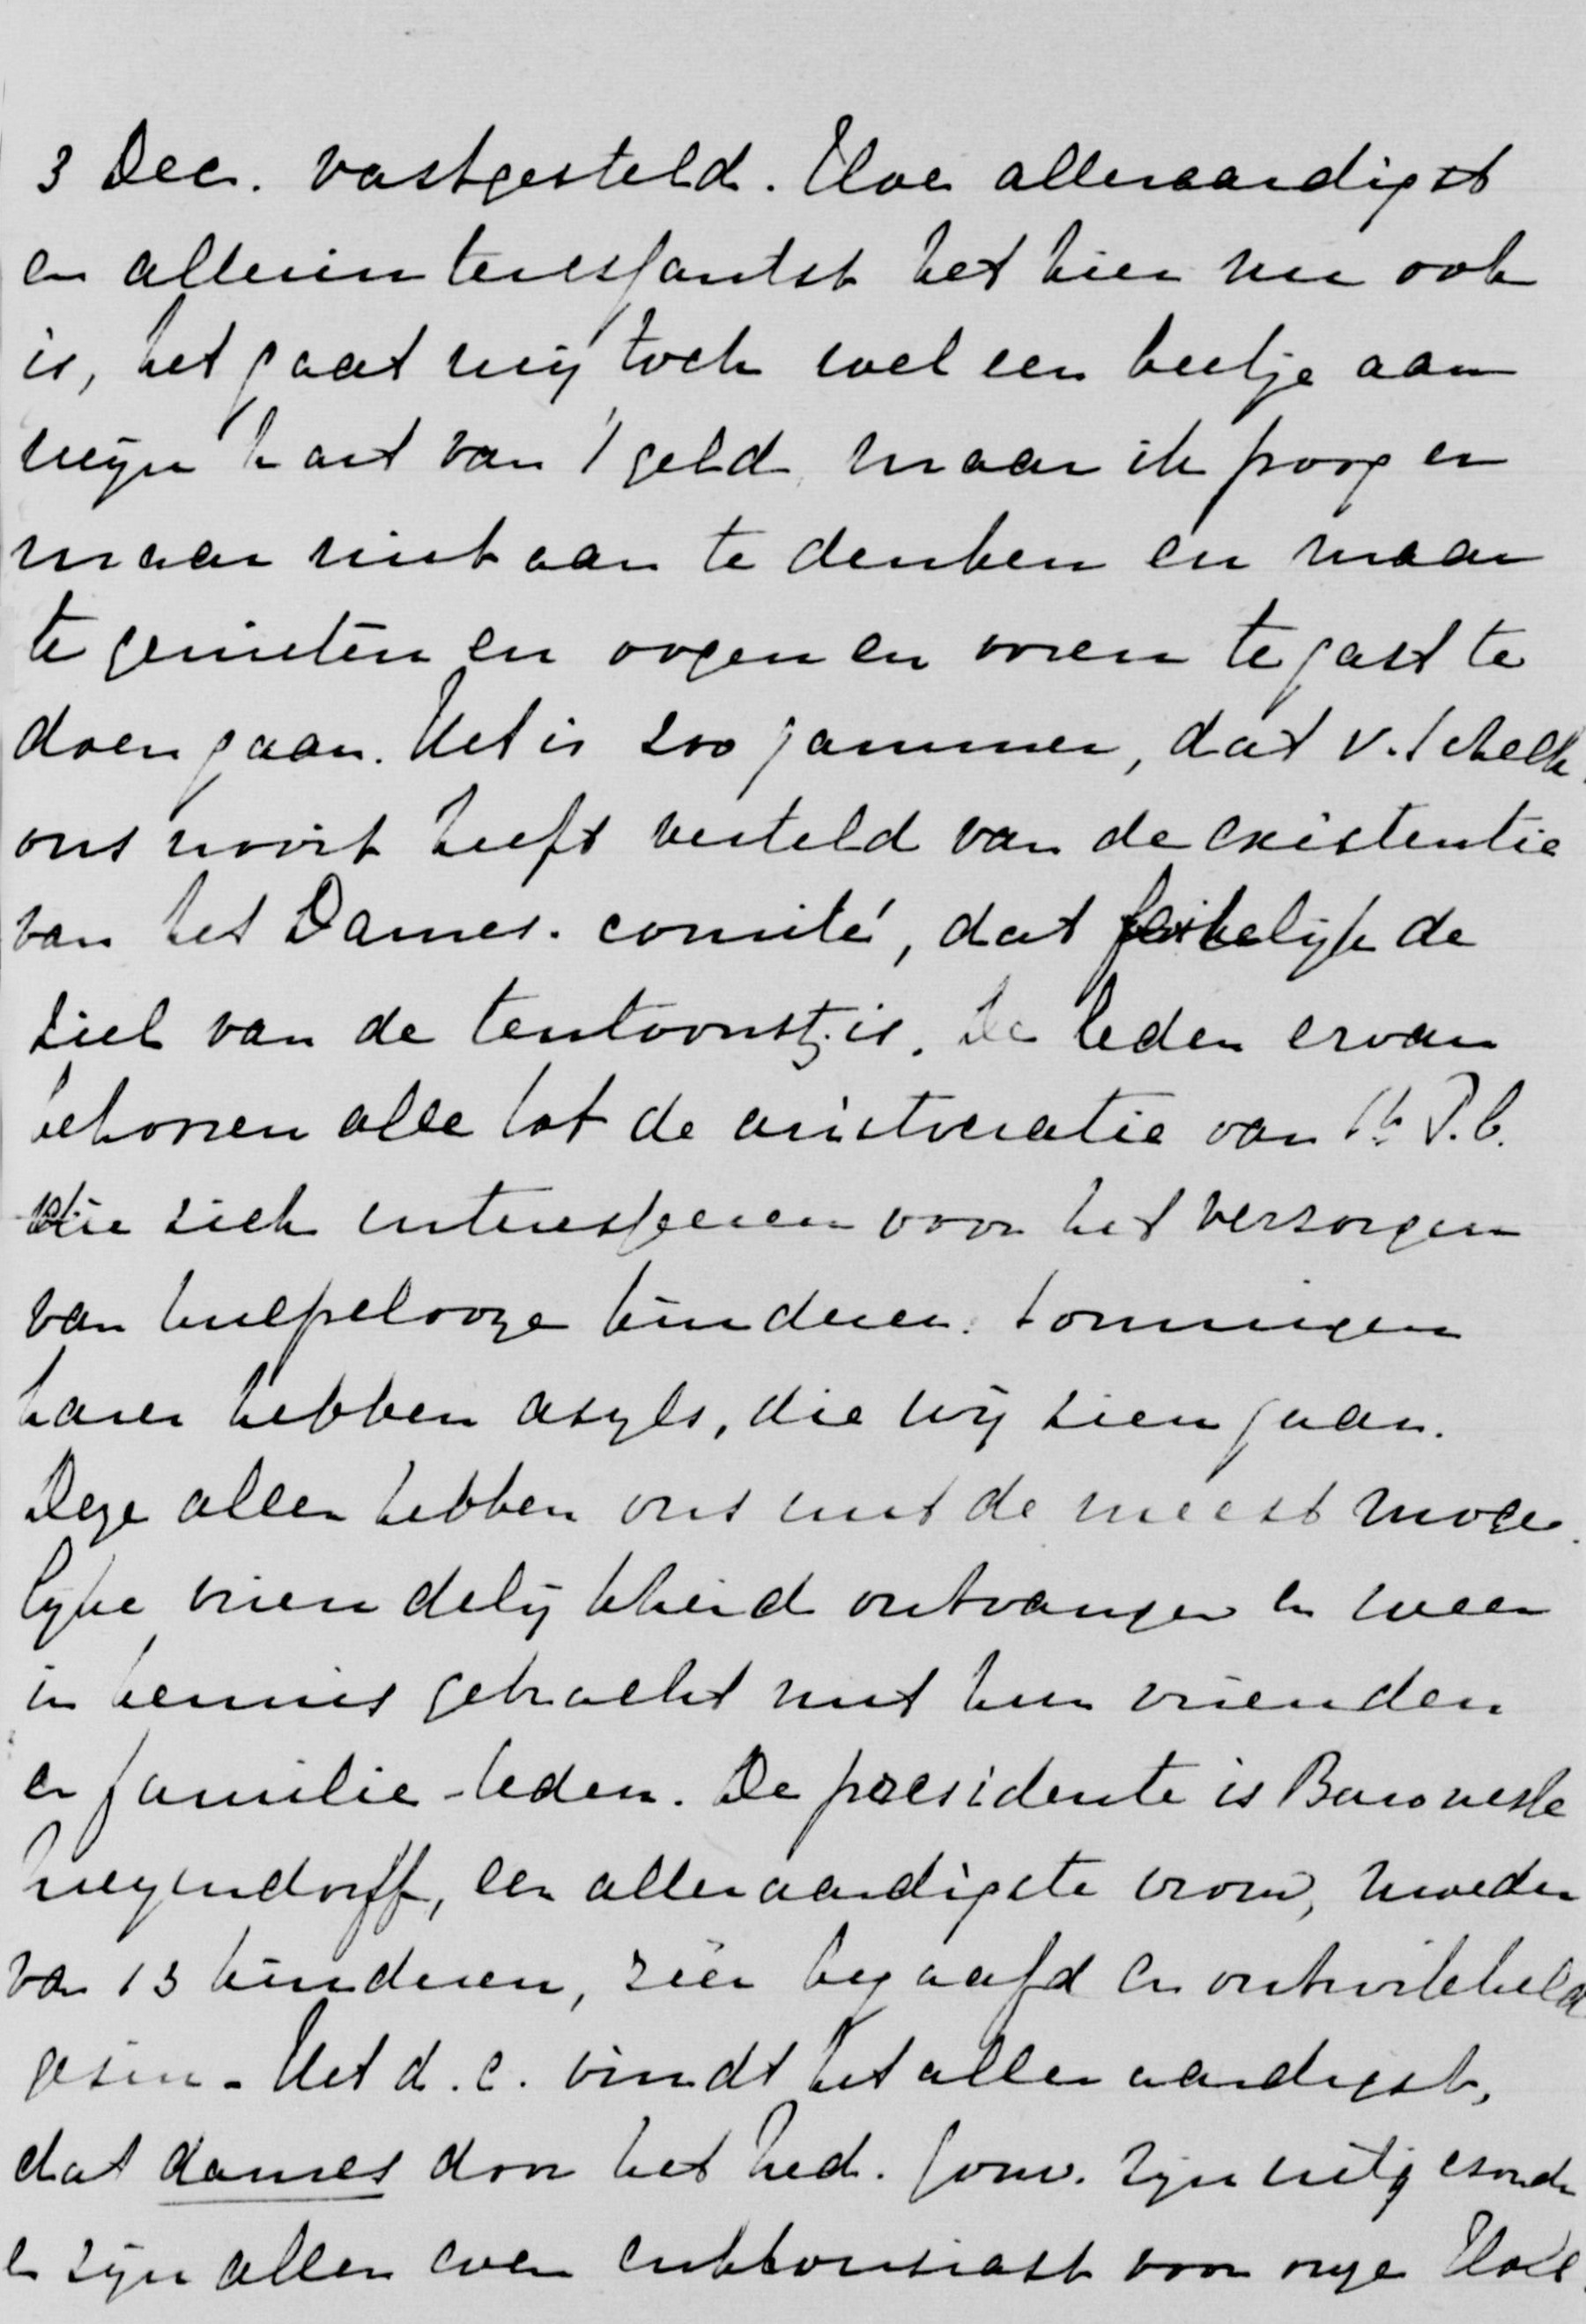 3 Dec. vastgesteld. Hoe alleraardigst
en allerinteressantst het hier nu ook
is, het gaat mij toch wel een beetje aan
mijn hart van 't geld, maar ik poog er
maar niet aan te denken en maar
te genieten en oogen en ooren te gast te
doen gaan. Het is zoo jammer, dat v. Schelk.
ons nooit heeft verteld van de existentie
van het Dames-comité, dat feitelijk de
ziel van de tentoonst; is. De leden ervan
behooren alle tot de aristocratie van St. P.b.
die zich interesseeren voor het verzorgen
van hulpelooze kinderen. Sommigen
harer hebben asyls, die wij zien gaan.
Deze allen hebben ons met de meest moge-
lijke vriendelijkheid ontvangen en weer
in kennis gebracht met hun vrienden
en familie-leden. De presidente is Baronesse
Meyendorff, een alleraardigste vrouw, moeder
van 13 kinderen, zéér begaafd en ontwikkeld
gezin. Het d.c. vindt het alleraardigst,
dat dames door het Ned. Gouv. zijn uitgezonden
en zijn allen even enthousiast voor onze Holl.